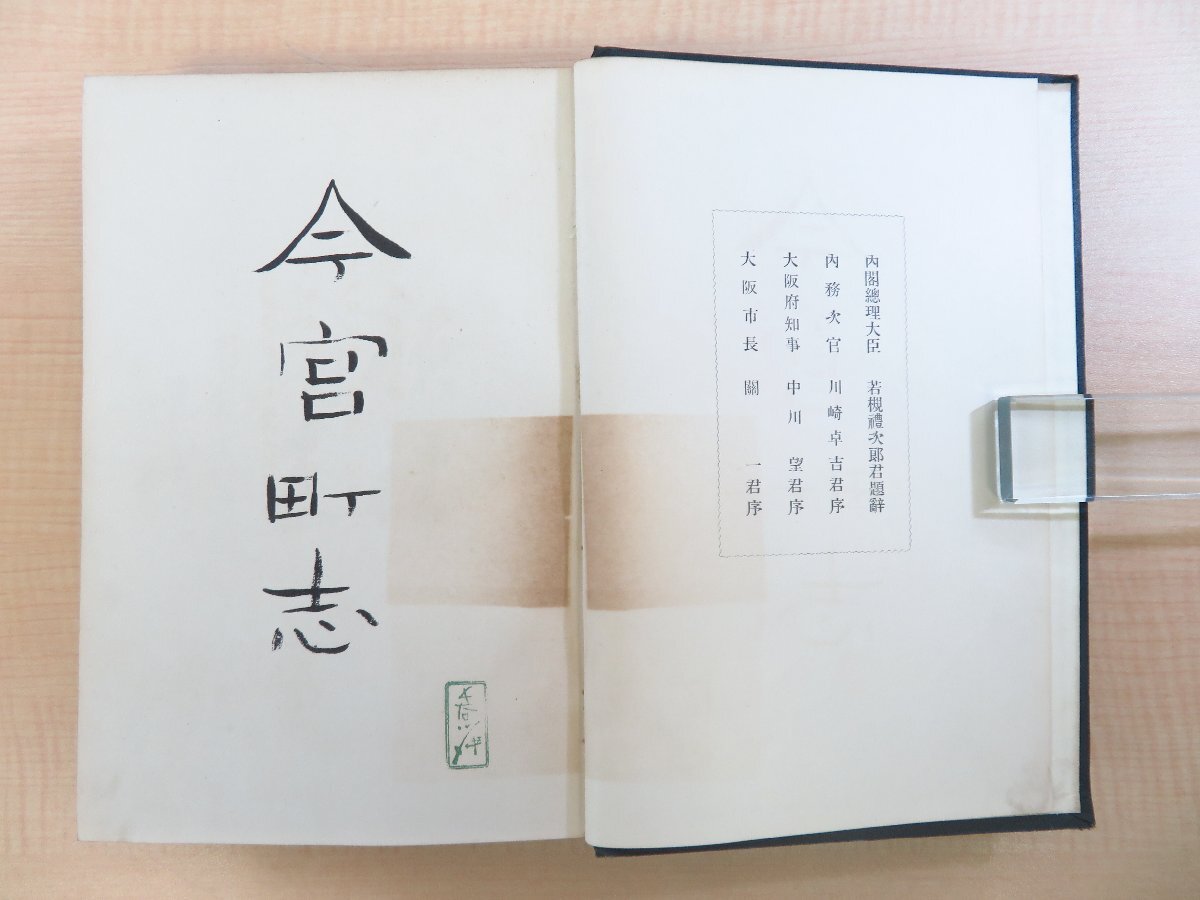 內閣總理大臣 若槻禮次郞君題辭
內務次官 川崎卓吉君序
大阪府知事 中川望君序
大阪市長 關一君序
今宮町志